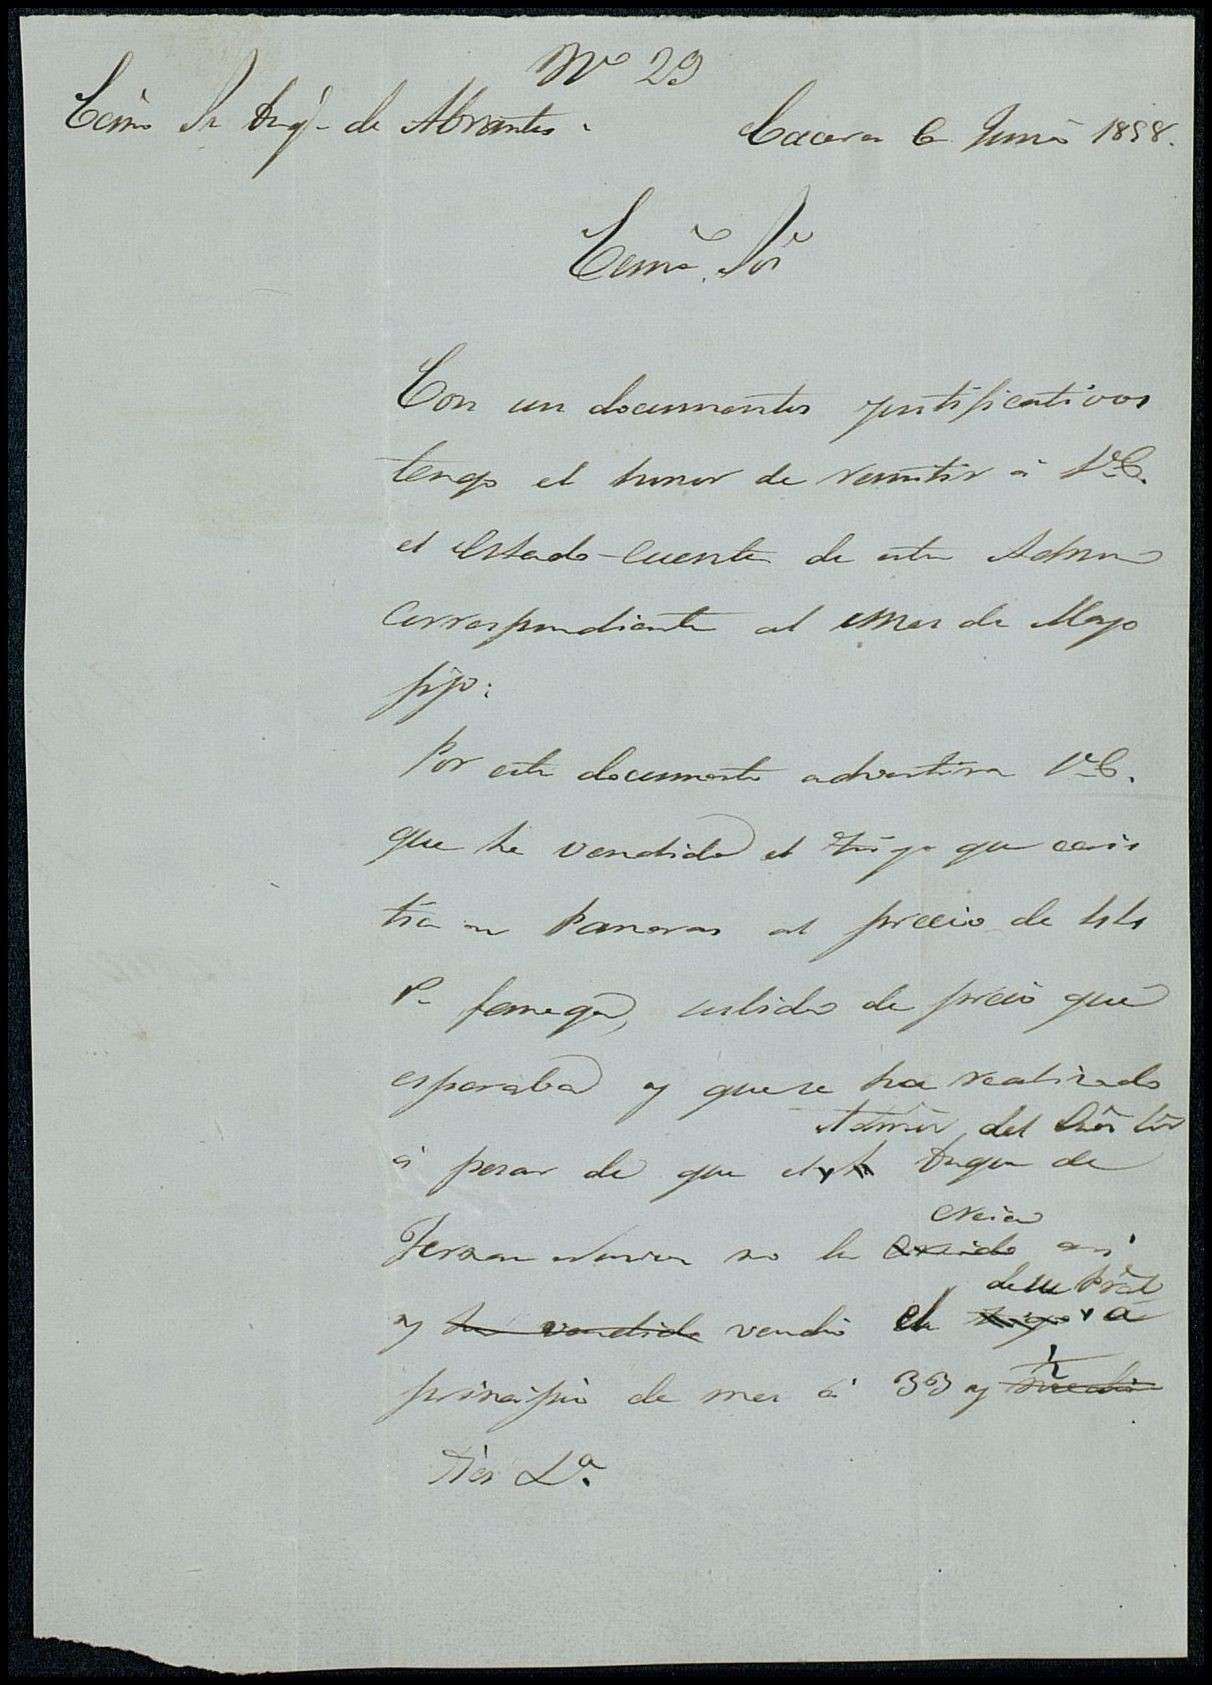 Nº 29
Ecmo Sr Duq.e de Abrantes.
Caceres 6 Junio 1858.
Ecmo. Sor
Con un documentos justificativos
tengo el honor de remitir á V.E.
el Estado-Cuenta de esta Admon
correspondiente al mes de Mayo
pp.
Por este documento advertira V.E.
que he vendido el trigo que ecsis
tia en Paneras al precio de 44
r. fanega, subida de precio que
esperaba y que se ha realizado
Admor. del Sor
á pesar de que el Duque de
creia
Fernan Nuñez no lo creido asi
de su Pral
y ha vendido vendió el trigo á
½
principio de mes á 33 y medio